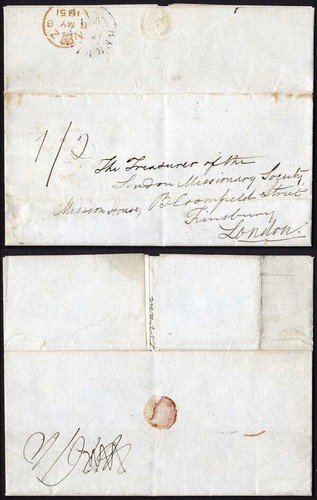 8 N 8
MY 8
1851
1/2
The Treasurer of the
London Missionary Society,
Mission House, Bloomfield Street
Finsbury
London.